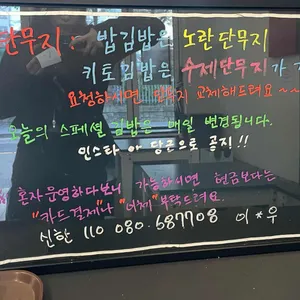 단무지 : 밥김밥은 노란단무지
키토김밥은 수제단무지가
요청하시면 단무지 교체해드려요~~
오늘의 스페셜 김밥은 매일 변경됩니다.
인스타 와 당근으로 공지!!
혼자운영하다보니 가능하시면 현금보다는
"카드결제나 "이체" 부탁드려요.
신한 110 080.687708 이*우